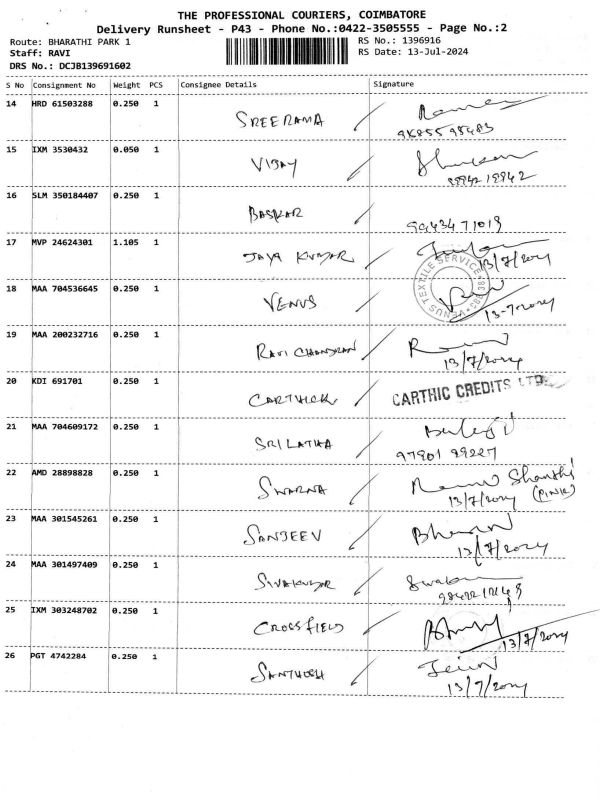 THE PROFESSIONAL COURIERS, COIMBATORE
Delivery Runsheet - P43 - Phone No.:0422-3505555 - Page No.:2
Route: BHARATHI PARK 1
RS No.: 1396916
Staff: RAVI
RS Date: 13-Jul-2024
DRS No.: DCJB139691602
S No Consignment No Weight PCS Consignee Details Signature
14 HRD 61503288 0.250 1 SREERAMA
15 IXM 3530432 0.050 1 VIJAY
16 SLM 350184407 0.250 1 BASKAR 99434 71013
17 MVP 24624301 1.105 1 JAYA KUMAR 13/7/2024
18 MAA 704536645 0.250 1 VENUS VENUS TEXTILE SERVICE 13-7-2024
19 MAA 200232716 0.250 1 RAVI CHANDRAN 13/7/2024
20 KDI 691701 0.250 1 CARTHICK CARTHIC CREDITS LTD.
21 MAA 704609172 0.250 1 SRILATHA 97901 99227
22 AMD 28898828 0.250 1 SWARNA Shanthi
13/7/2024 (PINK)
23 MAA 301545261 0.250 1 SANJEEV 13/7/2024
24 MAA 301497409 0.250 1 SIVAKUMAR
25 IXM 303248702 0.250 1 CROSSFIELD 13/7/2024
26 PGT 4742284 0.250 1 SANTHOSH 13/7/2024